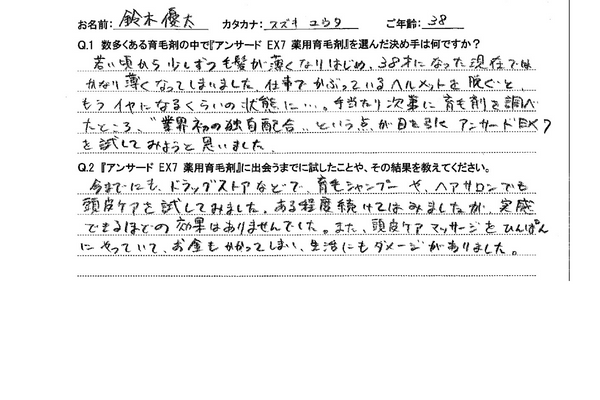 お名前: 鈴木優太 カタカナ: スズキ ユウタ ご年齢: 38
Q.1 数多くある育毛剤の中で『アンサード EX7 薬用育毛剤』を選んだ決め手は何ですか？
若い頃から少しずつ毛髪が薄くなりはじめ、38才になった現在では
かなり薄くなってしまいました。仕事でかぶっているヘルメットを脱ぐと、
もうイヤになるくらいの状態に…。手当たり次第に育毛剤を調べ
たところ、"業界初の独自配合"という点が目を引く アンサードEX7
を試してみようと思いました。
Q.2 『アンサード EX7 薬用育毛剤』に出会うまでに試したことや、その結果を教えてください。
今までにも、ドラッグストアなどで、育毛シャンプーや、ヘアサロンでも
頭皮ケアを試してみました。ある程度続けてはみましたが、実感
できるほどの効果はありませんでした。また、頭皮ケアマッサージをひんぱん
にやっていて、お金もかかってしまい、生活にもダメージがありました。